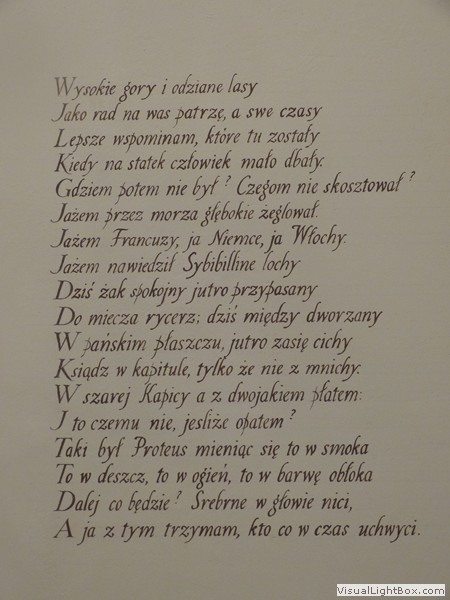 Wysokie gory i odziane lasy
Jako rad na was patrzę, a swe czasy
Lepsze wspominam, które tu zostały
Kiedy na statek człowiek mało dbały.
Gdziem potem nie był? Czegom nie skosztował?
Jażem przez morza głębokie żeglował.
Jażem Francuzy, ja Niemce, ja Włochy.
Jażem nawiedził Sybibilline lochy
Dziś żak spokojny jutro przypasany
Do miecza rycerz; dziś między dworzany
W pańskim płaszczu, jutro zasię cichy
Ksiądz w kapitule, tylko że nie z mnichy.
W szarej Kapicy a z dwojakiem płatem:
J to czemu nie, jesliże opatem?
Taki był Proteus mieniąc się to w smoka
To w deszcz, to w ogień, to w barwę obłoka
Dalej co będzie? Srebrne w głowie nici,
A ja z tym trzymam, kto co w czas uchwyci.
VisualLightBox.com